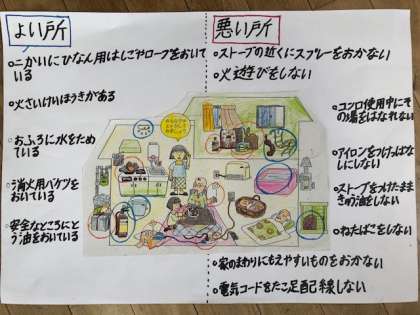 よい所
・二かいにひなん用はしごやロープをおいて
いる
・火さいけいほうきがある
・おふろに水をため
ている
・消火用バケツを
おいている
・安全なところにと
う油をおいている
悪い所
・ストーブの近くにスプレーをおかない
・火遊びをしない
・コンロ使用中にそ
の場をはなれない
・アイロンをつけっぱな
しにしない
・ストーブをつけたまま
きゅう油をしない
・ねたばこをしない
・家のまわりにもえやすいものをおかない
・電気コードをたこ足配線しない